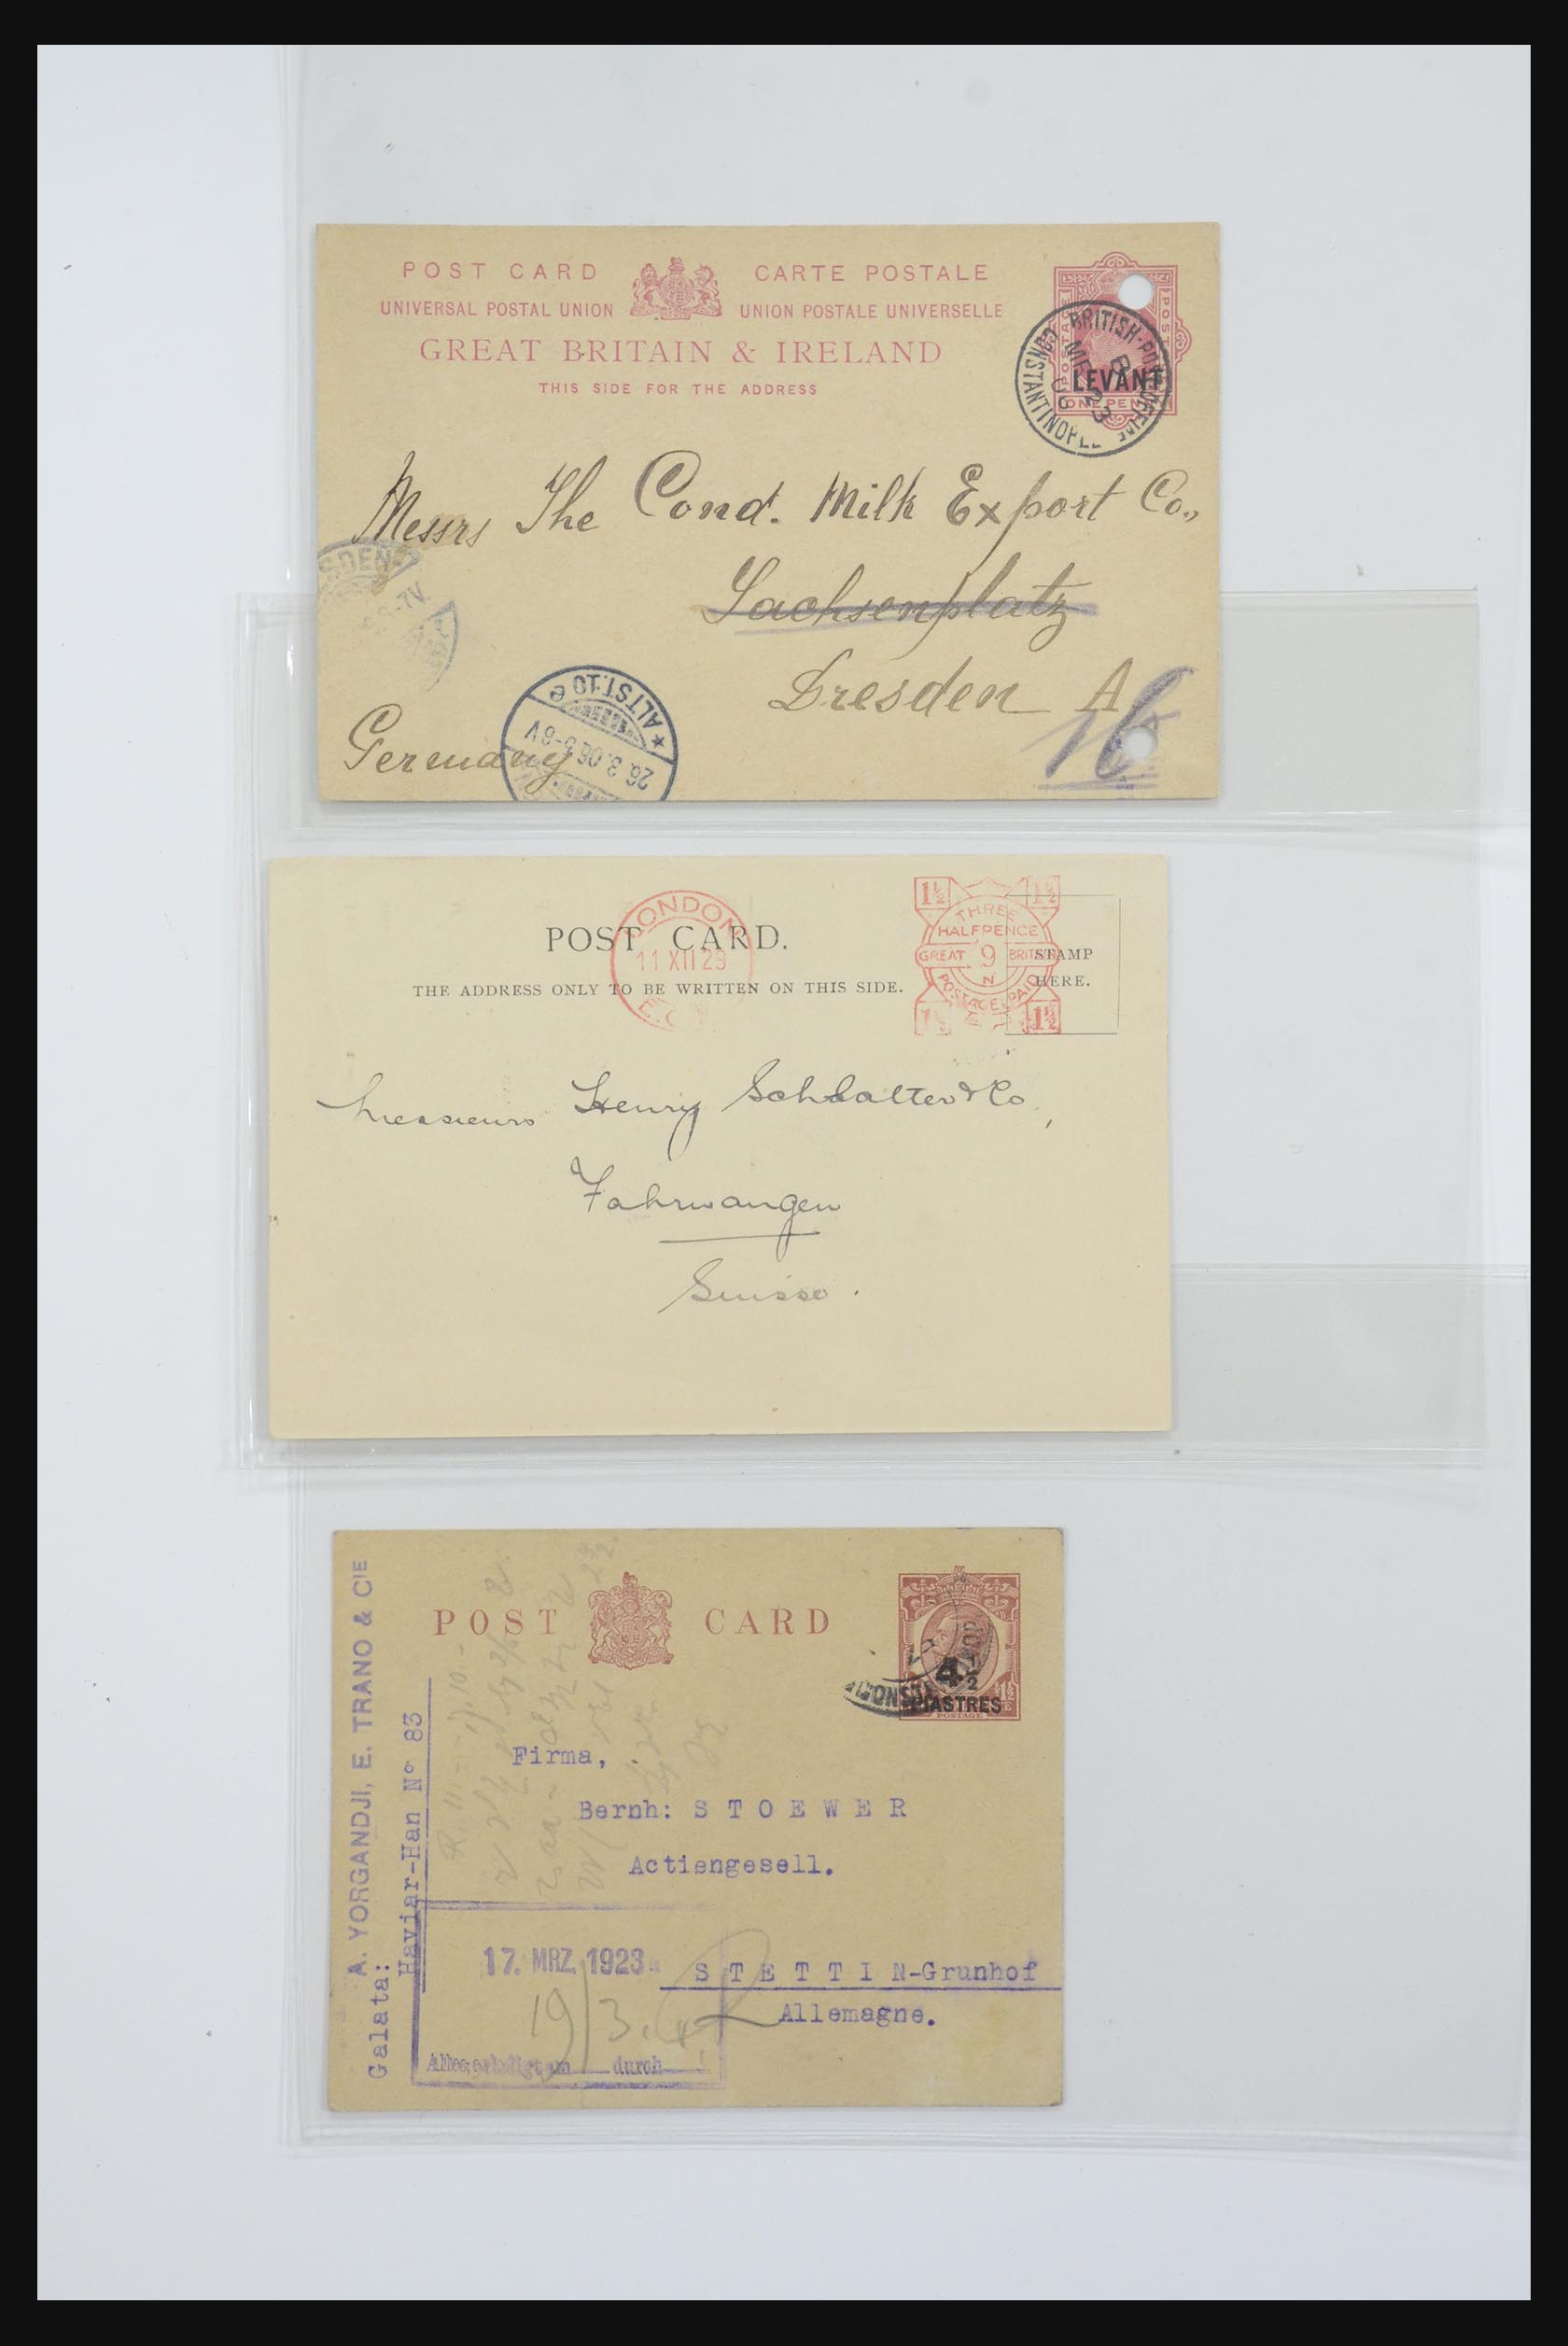 POST CARD CARTE POSTALE
UNIVERSAL POSTAL UNION UNION POSTALE UNIVERSELLE
GREAT BRITAIN & IRELAND
THIS SIDE FOR THE ADDRESS
POSTAGE POSTAGE
ONE PENNY
LEVANT
BRITISH-POST OFFICE
B
MR 23
06
CONSTANTINOPLE
Messrs The Cond. Milk Export Co.,
Sachsenplatz
Dresden A.
16
Germany
SDEN-
-7V
ALTST.10 e
26.3.06.5-6V
POST CARD.
THE ADDRESS ONLY TO BE WRITTEN ON THIS SIDE.
LONDON
11 XII 29
E.C.
1½ 1½
THREE
HALFPENCE
GREAT 9 BRITAIN
N
POSTAGE PAID
1½ 1½
STAMP
HERE.
Messieurs Henry Schlatter & Co,
Fahrwangen
Suisse.
POST CARD
4½
PIASTRES
POSTAGE
A. YORGANDJI, E. TRANO & CIE
Galata:
Haviar-Han No 83
Firma,
Bernh: STOEWER
Actiengesell.
17. MRZ. 1923
STETTIN-Grunhof
Allemagne.
19/3.
durch